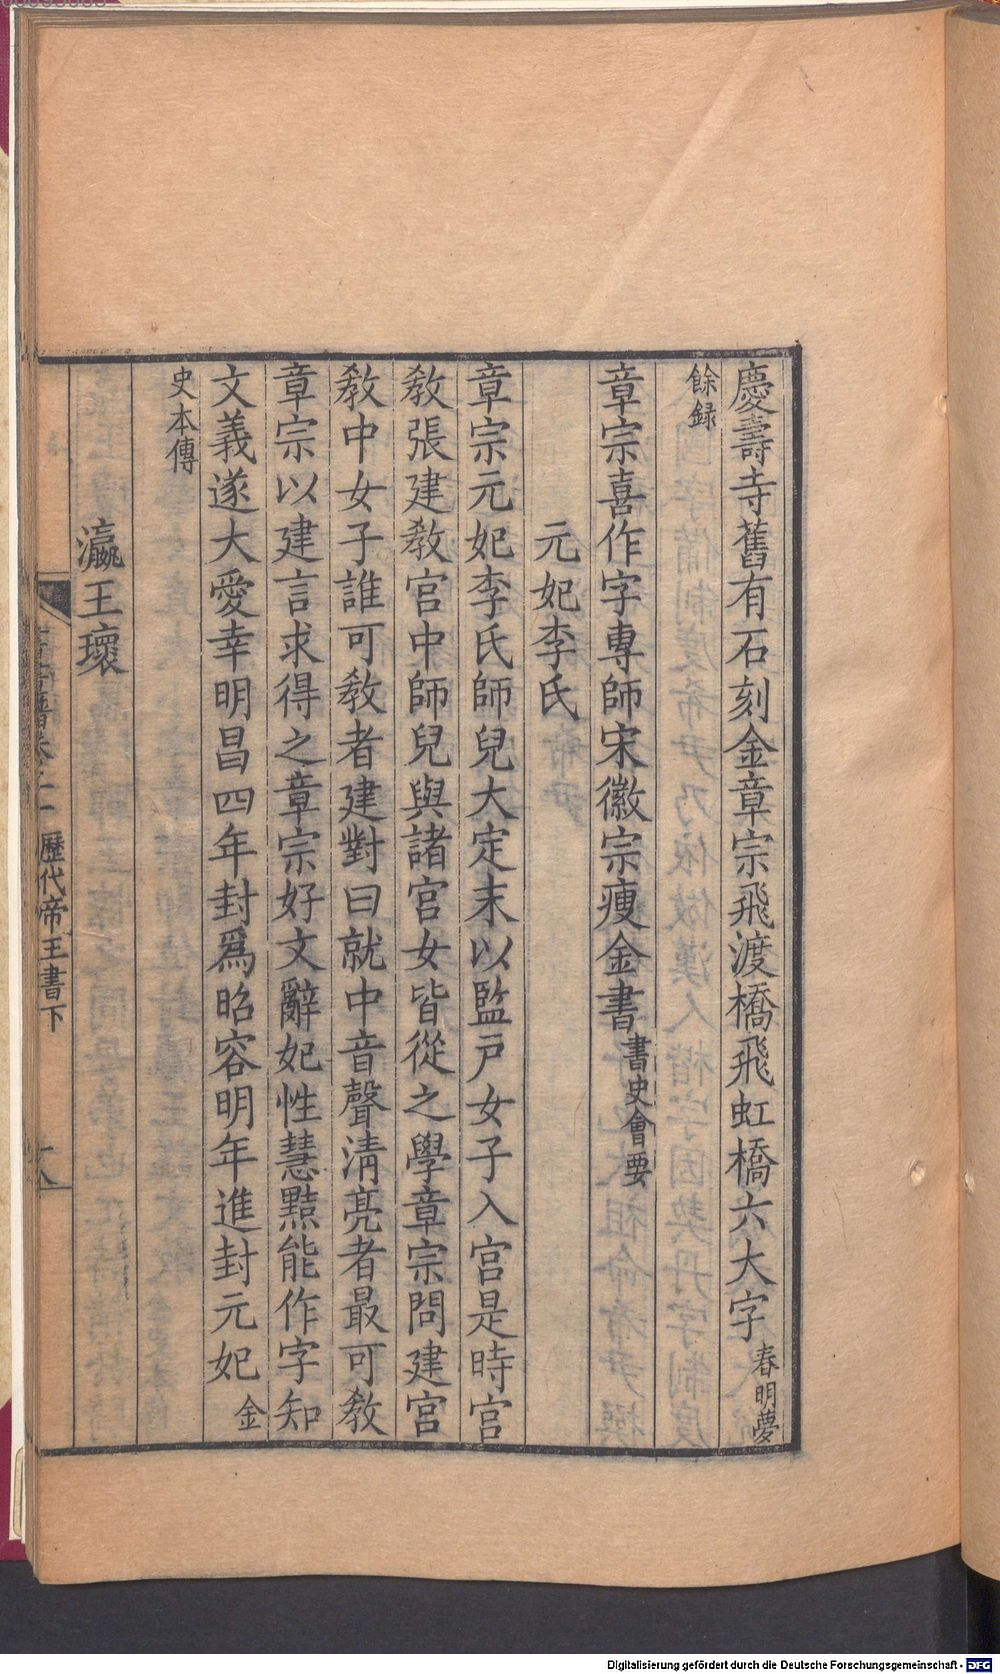 慶壽寺舊有石刻金章宗飛渡橋飛虹橋六大字春明夢
餘録
章宗喜作字專師宋徽宗瘦金書書史會要
元妃李氏
章宗元妃李氏師兒大定末以監戸女子入宮是時宮
敎張建敎宮中師兒與諸宮女皆從之學章宗問建宮
敎中女子誰可敎者建對曰就中音聲清亮者最可敎
章宗以建言求得之章宗好文辭妃性慧黠能作字知
文義遂大愛幸明昌四年封爲昭容明年進封元妃金
史本傳
瀛王瓌
歷代帝王書下
Digitalisierung gefördert durch die Deutsche Forschungsgemeinschaft - DFG